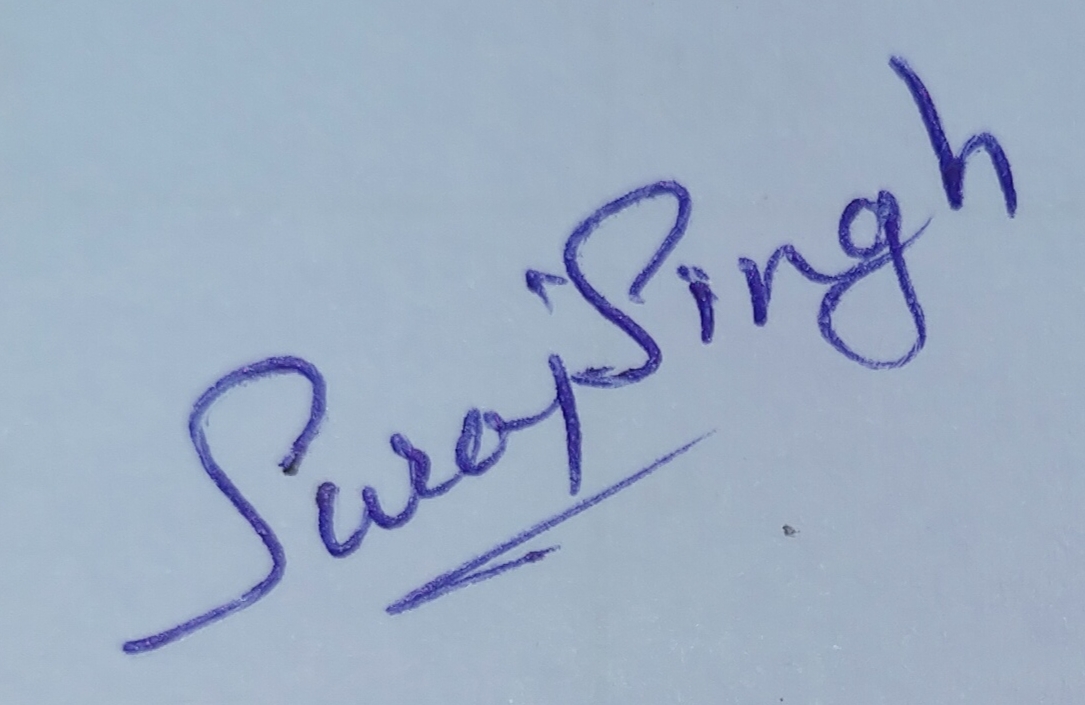 Suraj Singh